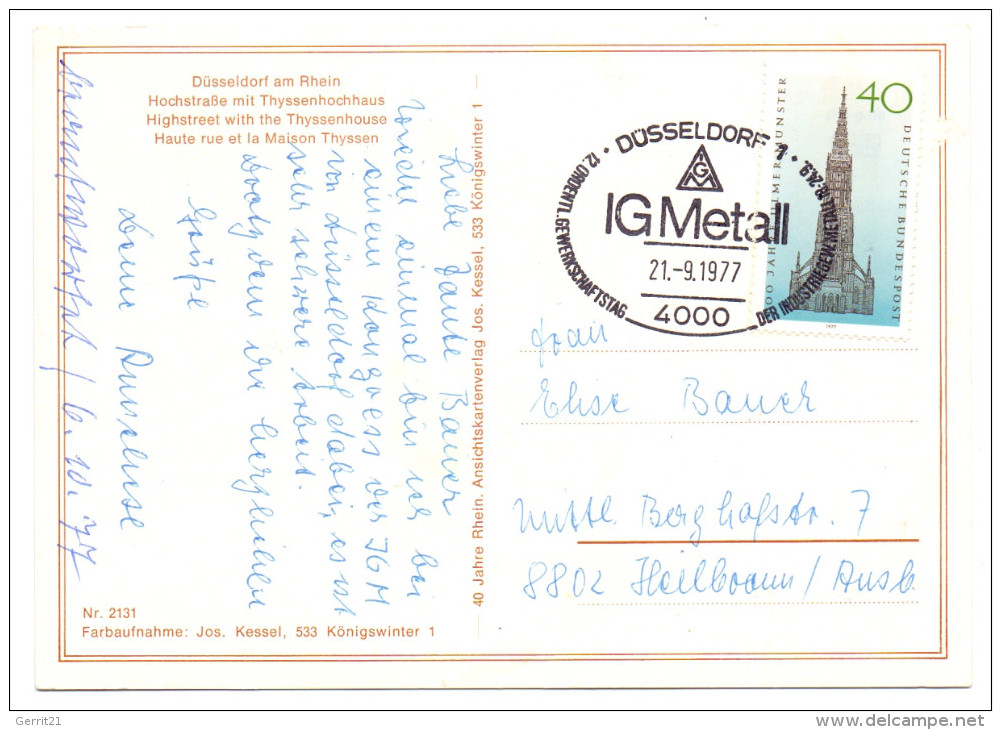 Düsseldorf am Rhein
Hochstraße mit Thyssenhochhaus
Highstreet with the Thyssenhouse
Haute rue et la Maison Thyssen
Liebe Tante Bauer
wieder einmal bin ich bei
einem Kongress der IGM
in Düsseldorf dabei, es ist
sehr schwere Arbeit.
Trotzdem die herzlichen
Grüße
Deine
6.10.77
Nr. 2131
Farbaufnahme: Jos. Kessel, 533 Königswinter 1
40 Jahre Rhein. Ansichtskartenverlag Jos. Kessel, 533 Königswinter 1
DÜSSELDORF 1
12. ORDENTL. GEWERKSCHAFTSTAG
DER INDUSTRIEGEW. METALL
IGM
IG Metall
21.-9.1977
4000
40
DEUTSCHE BUNDESPOST
JAHRE ULMER MÜNSTER
1977
Frau
Elise Bauer
Mittl. Berghofstr. 7
8802 Heilbronn/Ansb.
Gerrit21
delcampe.net